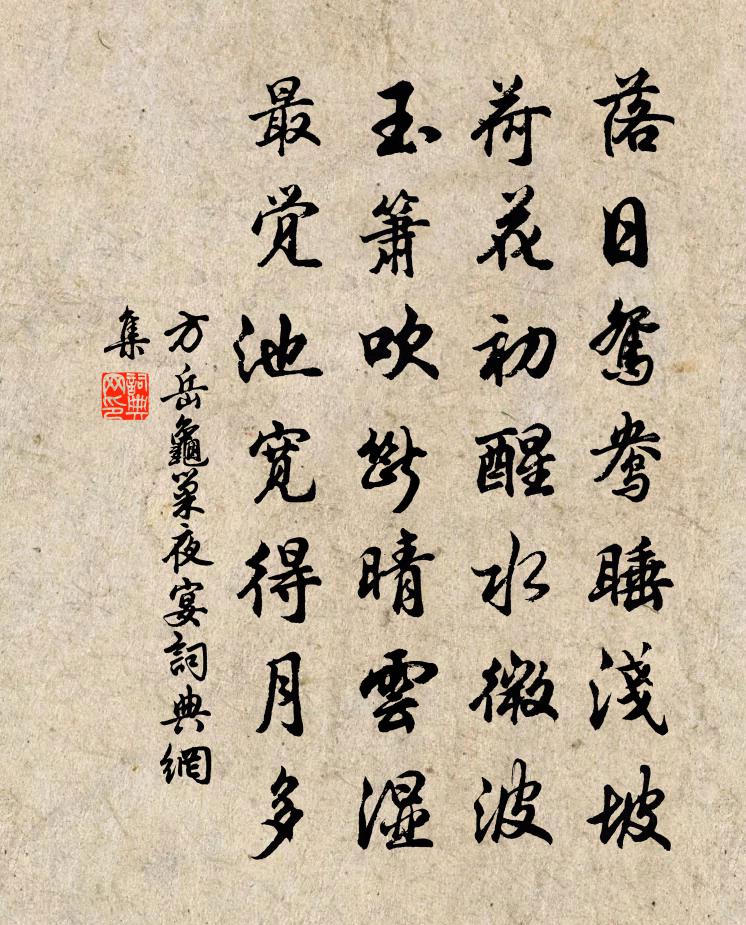 落日鴛鴦睡淺坡
荷花初醒水微波
玉簫吹斷晴雲濕
最覺池寬得月多
方岳龜巢夜宴詞典網
集
詞典網印